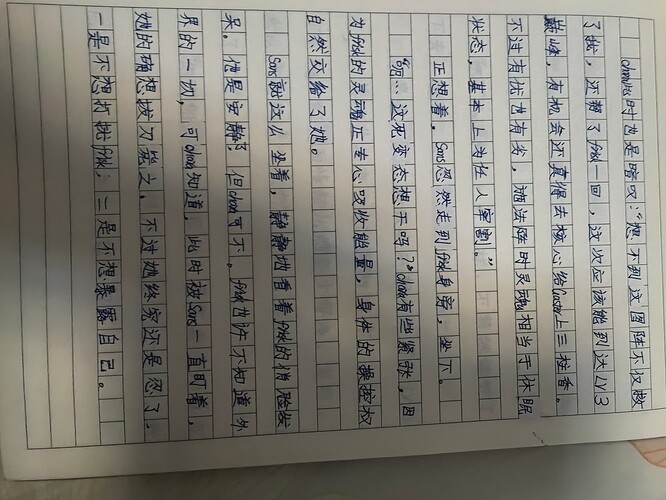 chara此时也是暗叹:“想不到这图阵不仅救
了我,还帮了frisk一回,这次应该能到达LV3
巅峰,有机会还真得去核心给Gaster上三柱香。
不过有优也有劣,施法阵时灵魂相当于休眠
状态,基本上为任人宰割。”
正想着,Sans忽然走到frisk身旁,坐下。
“呃…这死变态想干吗?”chara有些紧张,因
为frisk的灵魂正专心吸收能量,身体的操控权
自然交给了她。
Sans就这么坐着,静静地看着frisk的俏脸发
呆。他是安静了,但chara可不。frisk也许不知道外
界的一切,可chara知道,此时被Sans一直盯着,
她的确想拔刀毙之,不过她终究还是忍了,
一是不想打扰frisk;二是不想暴露自己。